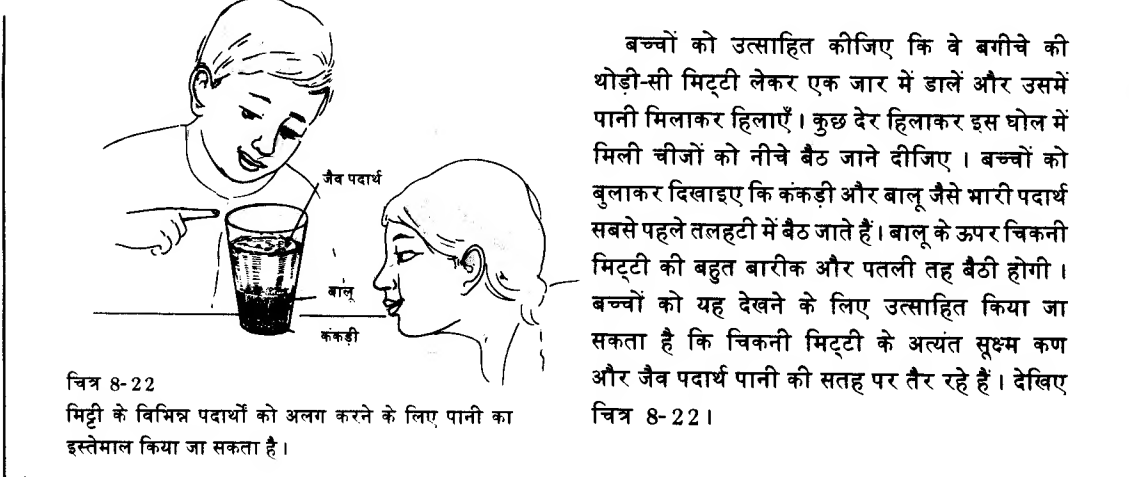 जैव पदार्थ
बालू
कंकड़ी
चित्र 8-22
मिट्टी के विभिन्न पदार्थों को अलग करने के लिए पानी का
इस्तेमाल किया जा सकता है।
बच्चों को उत्साहित कीजिए कि वे बगीचे की
थोड़ी-सी मिट्टी लेकर एक जार में डालें और उसमें
पानी मिलाकर हिलाएँ। कुछ देर हिलाकर इस घोल में
मिली चीजों को नीचे बैठ जाने दीजिए। बच्चों को
बुलाकर दिखाइए कि कंकड़ी और बालू जैसे भारी पदार्थ
सबसे पहले तलहटी में बैठ जाते हैं। बालू के ऊपर चिकनी
मिट्टी की बहुत बारीक और पतली तह बैठी होगी।
बच्चों को यह देखने के लिए उत्साहित किया जा
सकता है कि चिकनी मिट्टी के अत्यंत सूक्ष्म कण
और जैव पदार्थ पानी की सतह पर तैर रहे हैं। देखिए
चित्र 8-22।